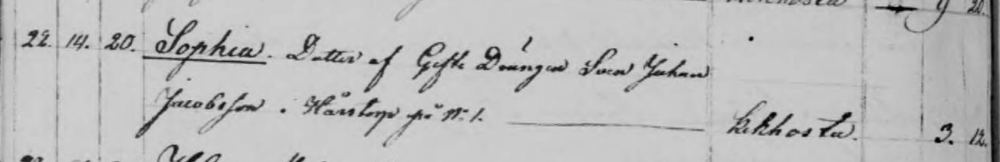 22. 14. 20. Sophia. Dotter af Gifte Drängen Sven Johan
Jacobsson i Hårstorp på N: 1. kikhosta. 3. 12.